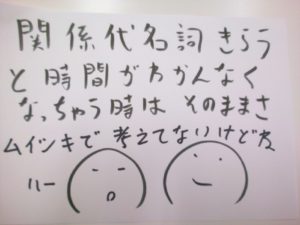 関係代名詞きらう
と時間がわかんなく
なっちゃう時は そのままさ
ムインキで 考えてないけど友
ハー